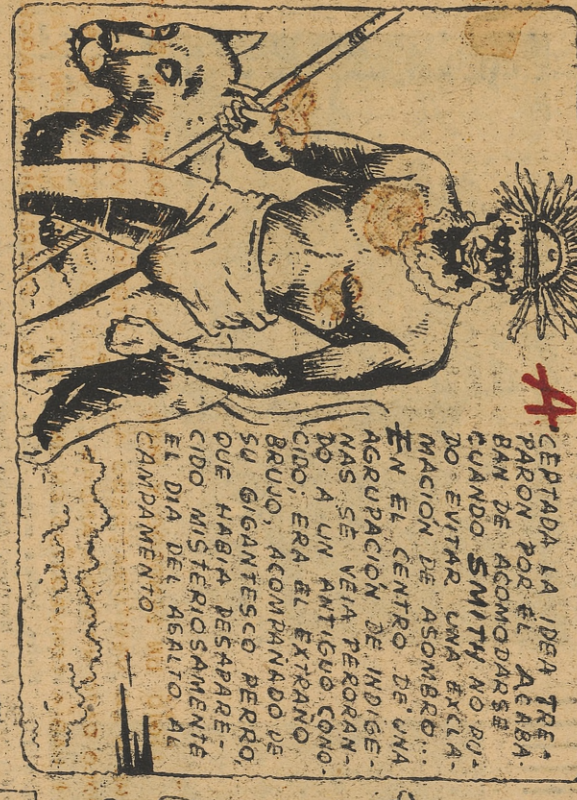 ACEPTADA LA IDEA TRE-
PARON POR EL ACABA
BAN DE ACOMODARSE
CUANDO SMITH NO PU-
DO EVITAR UNA EXCLA-
MACIÓN DE ASOMBRO...
EN EL CENTRO DE UNA
AGRUPACIÓN DE INDIGE-
NAS SE VEIA PERORAN-
DO A UN ANTIGUO CONO-
CIDO; ERA EL EXTRAÑO
BRUJO, ACOMPAÑADO DE
SU GIGANTESCO PERRO,
QUE HABIA DESAPARE-
CIDO MISTERIOSAMENTE
EL DIA DEL ASALTO AL
CAMPAMENTO